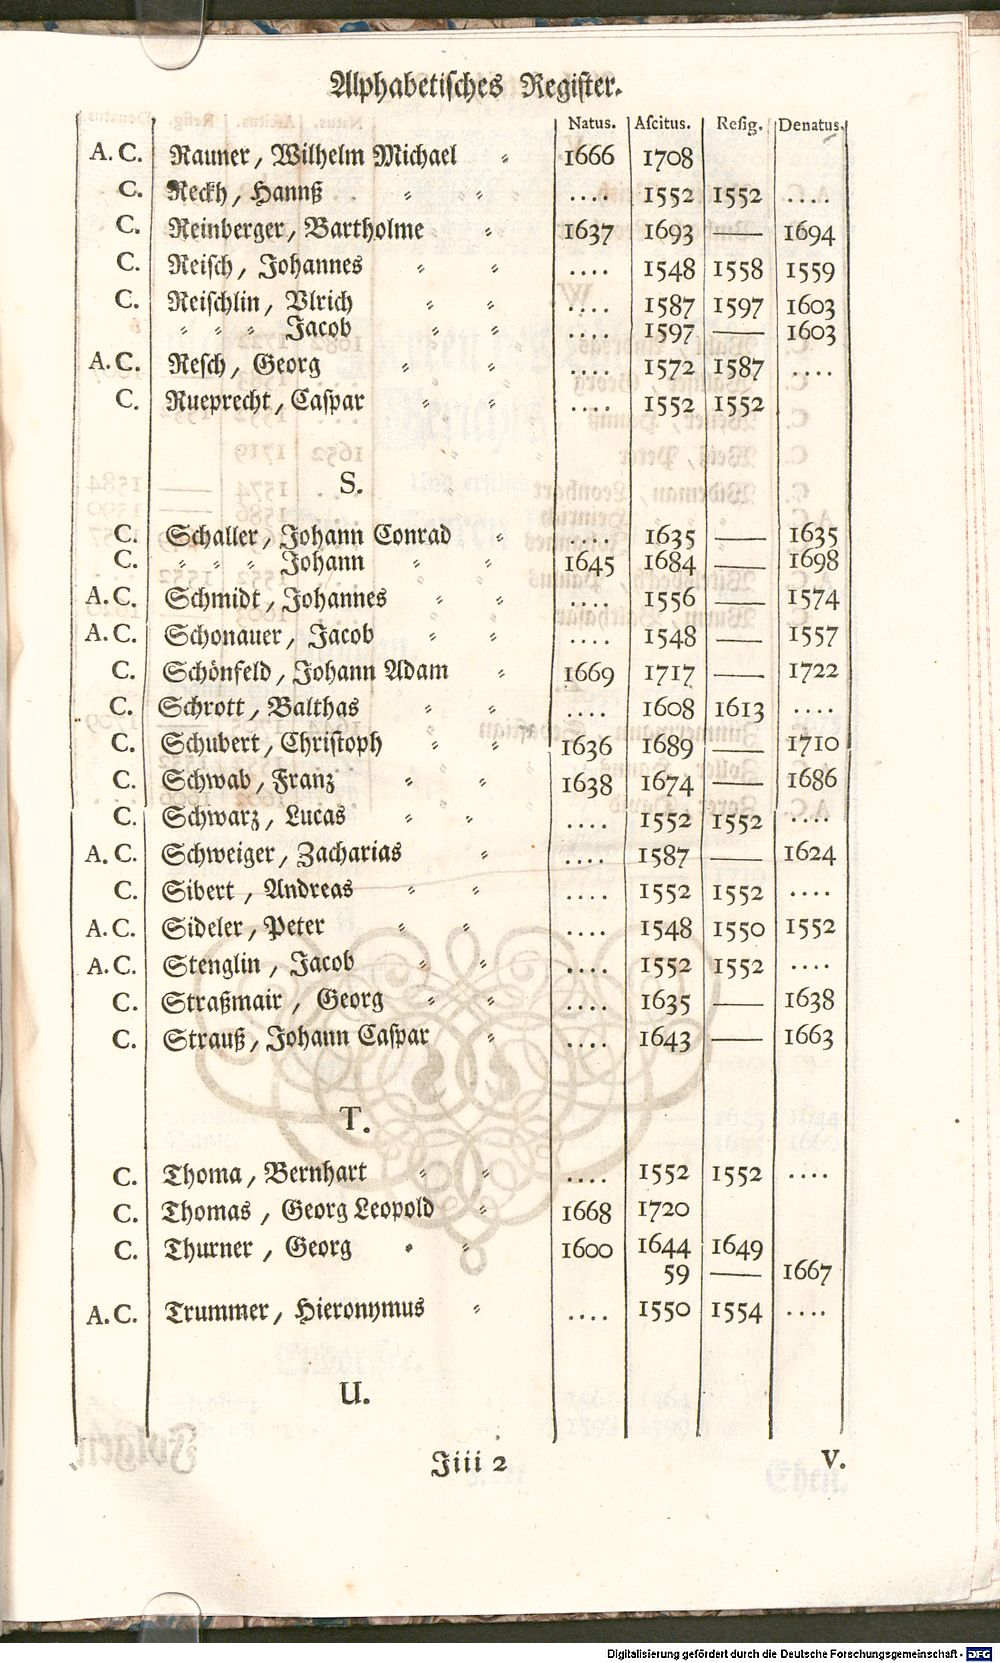 Alphabetisches Register.
Natus. Ascitus. Resig. Denatus.
A. C. Rauner, Wilhelm Michael 1666 1708
C. Reckh, Hannß .... 1552 1552 ....
C. Reinberger, Bartholme 1637 1693 — 1694
C. Reisch, Johannes .... 1548 1558 1559
C. Reischlin, Ulrich .... 1587 1597 1603
Jacob .... 1597 — 1603
A. C. Resch, Georg .... 1572 1587 ....
C. Rueprecht, Caspar .... 1552 1552
S.
C. Schaller, Johann Conrad .... 1635 — 1635
C. Johann 1645 1684 — 1698
A. C. Schmidt, Johannes .... 1556 — 1574
A. C. Schonauer, Jacob .... 1548 — 1557
C. Schönfeld, Johann Adam 1669 1717 — 1722
C. Schrott, Balthas .... 1608 1613 ....
C. Schubert, Christoph 1636 1689 — 1710
C. Schwab, Franz 1638 1674 — 1686
C. Schwarz, Lucas .... 1552 1552 ....
A. C. Schweiger, Zacharias .... 1587 — 1624
C. Sibert, Andreas .... 1552 1552 ....
A. C. Sideler, Peter .... 1548 1550 1552
A. C. Stenglin, Jacob .... 1552 1552 ....
C. Straßmair, Georg .... 1635 — 1638
C. Strauß, Johann Caspar .... 1643 — 1663
T.
C. Thoma, Bernhart .... 1552 1552 ....
C. Thomas, Georg Leopold 1668 1720
C. Thurner, Georg 1600 1644 1649
59 — 1667
A. C. Trummer, Hieronymus .... 1550 1554 ....
U.
Jiii 2 V.
Digitalisierung gefördert durch die Deutsche Forschungsgemeinschaft - DFG